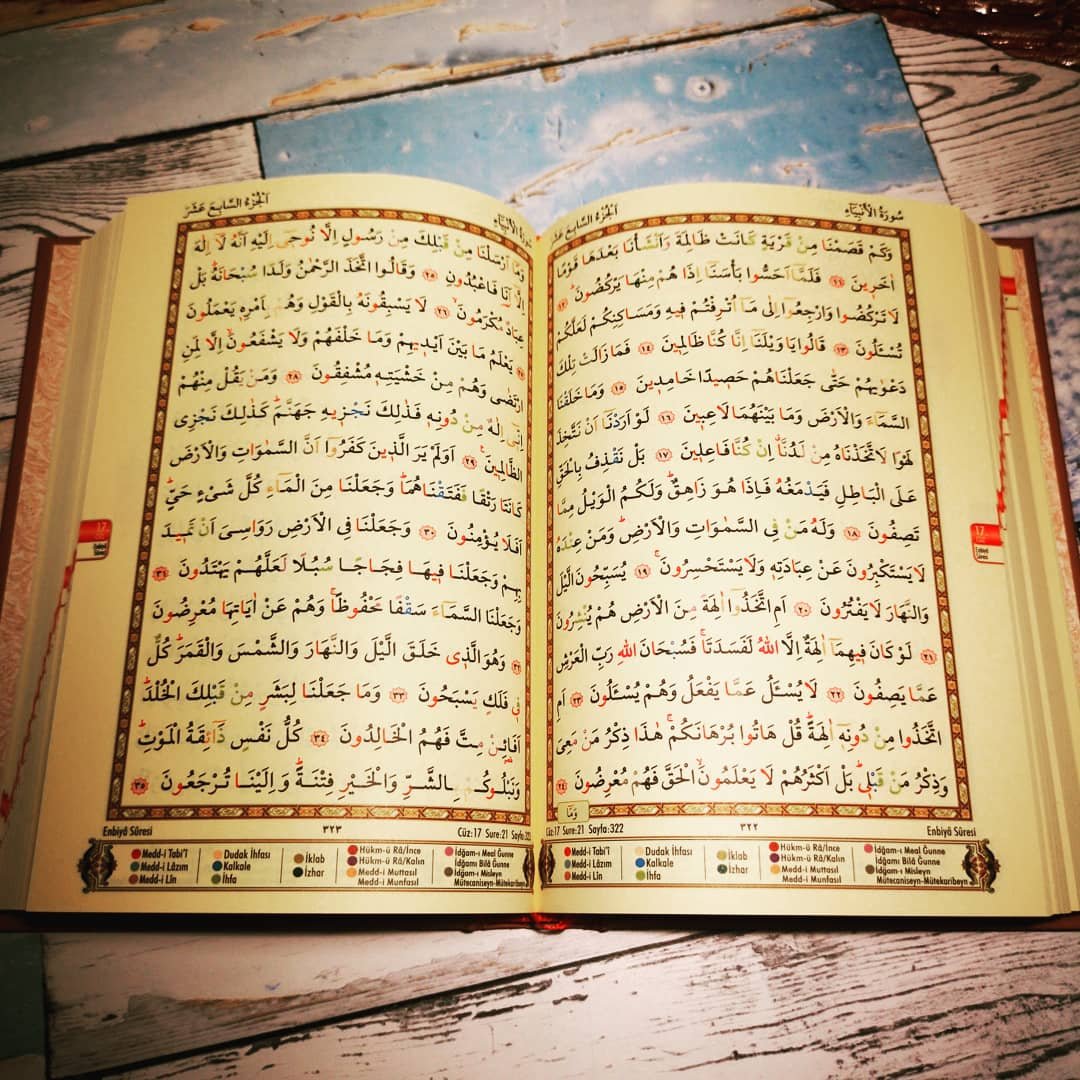 سُورَةُ الْأَنْبِيَاءِ
اَلْجُزْءُ السَّابِعَ عَشَرَ
وَكَمْ قَصَمْنَا مِنْ قَرْيَةٍ كَانَتْ ظَالِمَةً وَاَنْشَأْنَا بَعْدَهَا قَوْمًا
اٰخَرٖينَ ﴿١١﴾ فَلَمَّٓا اَحَسُّوا بَأْسَنَٓا اِذَا هُمْ مِنْهَا يَرْكُضُونَ ﴿١٢﴾
لَا تَرْكُضُوا وَارْجِعُٓوا اِلٰى مَٓا اُتْرِفْتُمْ فٖيهِ وَمَسَاكِنِكُمْ لَعَلَّكُمْ
تُسْـَٔلُونَ ﴿١٣﴾ قَالُوا يَا وَيْلَنَٓا اِنَّا كُنَّا ظَالِمٖينَ ﴿١٤﴾ فَمَا زَالَتْ تِلْكَ
دَعْوٰيهُمْ حَتّٰى جَعَلْنَاهُمْ حَصٖيدًا خَامِدٖينَ ﴿١٥﴾ وَمَا خَلَقْنَا
السَّمَٓاءَ وَالْاَرْضَ وَمَا بَيْنَهُمَا لَاعِبٖينَ ﴿١٦﴾ لَوْ اَرَدْنَٓا اَنْ نَتَّخِذَ
لَهْوًا لَاتَّخَذْنَاهُ مِنْ لَدُنَّاۗ اِنْ كُنَّا فَاعِلٖينَ ﴿١٧﴾ بَلْ نَقْذِفُ بِالْحَقِّ
عَلَى الْبَاطِلِ فَيَدْمَغُهُ فَاِذَا هُوَ زَاهِقٌۜ وَلَكُمُ الْوَيْلُ مِمَّا
تَصِفُونَ ﴿١٨﴾ وَلَهُ مَنْ فِى السَّمٰوَاتِ وَالْاَرْضِۜ وَمَنْ عِنْدَهُ
لَا يَسْتَكْبِرُونَ عَنْ عِبَادَتِهٖ وَلَا يَسْتَحْسِرُونَۚ ﴿١٩﴾ يُسَبِّحُونَ الَّيْلَ
وَالنَّهَارَ لَا يَفْتُرُونَ ﴿٢٠﴾ اَمِ اتَّخَذُٓوا اٰلِهَةً مِنَ الْاَرْضِ هُمْ يُنْشِرُونَ
﴿٢١﴾ لَوْ كَانَ فٖيهِمَٓا اٰلِهَةٌ اِلَّا اللّٰهُ لَفَسَدَتَاۚ فَسُبْحَانَ اللّٰهِ رَبِّ الْعَرْشِ
عَمَّا يَصِفُونَ ﴿٢٢﴾ لَا يُسْـَٔلُ عَمَّا يَفْعَلُ وَهُمْ يُسْـَٔلُونَ ﴿٢٣﴾ اَمِ
اتَّخَذُوا مِنْ دُونِهٖٓ اٰلِهَةًۜ قُلْ هَاتُوا بُرْهَانَكُمْۚ هٰذَا ذِكْرُ مَنْ مَعِىَ
وَذِكْرُ مَنْ قَبْلٖىۜ بَلْ اَكْثَرُهُمْ لَا يَعْلَمُونَۙ الْحَقَّ فَهُمْ مُعْرِضُونَ ﴿٢٤﴾
وَمَٓا
Cüz:17 Sure:21 Sayfa:322
٣٢٢
Enbiyâ Sûresi
Medd-i Tabi'î
Medd-i Lâzım
Medd-i Lîn
Dudak İhfası
Kalkale
İhfa
İklab
İzhar
Hükm-ü Râ/İnce
Hükm-ü Râ/Kalın
Medd-i Muttasıl
Medd-i Munfasıl
İdğam-ı Meal Ğunne
İdğamı Bilâ Ğunne
İdğam-ı Misleyn
Mütecaniseyn-Mütekaribeyn
17
سُورَةُ الْأَنْبِيَاءِ
اَلْجُزْءُ السَّابِعَ عَشَرَ
وَمَٓا اَرْسَلْنَا مِنْ قَبْلِكَ مِنْ رَسُولٍ اِلَّا نُوحٖٓى اِلَيْهِ اَنَّهُ لَٓا اِلٰهَ
اِلَّٓا اَنَا فَاعْبُدُونِ ﴿٢٥﴾ وَقَالُوا اتَّخَذَ الرَّحْمٰنُ وَلَدًا سُبْحَانَهُۜ بَلْ
عِبَادٌ مُكْرَمُونَۙ ﴿٢٦﴾ لَا يَسْبِقُونَهُ بِالْقَوْلِ وَهُمْ بِاَمْرِهٖ يَعْمَلُونَ
﴿٢٧﴾ يَعْلَمُ مَا بَيْنَ اَيْدٖيهِمْ وَمَا خَلْفَهُمْ وَلَا يَشْفَعُونَۙ اِلَّا لِمَنِ
ارْتَضٰى وَهُمْ مِنْ خَشْيَتِهٖ مُشْفِقُونَ ﴿٢٨﴾ وَمَنْ يَقُلْ مِنْهُمْ
اِنّٖٓى اِلٰهٌ مِنْ دُونِهٖ فَذٰلِكَ نَجْزٖيهِ جَهَنَّمَۜ كَذٰلِكَ نَجْزِى
الظَّالِمٖينَ۟ ﴿٢٩﴾ اَوَلَمْ يَرَ الَّذٖينَ كَفَرُٓوا اَنَّ السَّمٰوَاتِ وَالْاَرْضَ
كَانَتَا رَتْقًا فَفَتَقْنَاهُمَاۜ وَجَعَلْنَا مِنَ الْمَٓاءِ كُلَّ شَىْءٍ حَىٍّۜ
اَفَلَا يُؤْمِنُونَ ﴿٣٠﴾ وَجَعَلْنَا فِى الْاَرْضِ رَوَاسِىَ اَنْ تَمٖيدَ
بِهِمْ وَجَعَلْنَا فٖيهَا فِجَاجًا سُبُلًا لَعَلَّهُمْ يَهْتَدُونَ ﴿٣١﴾
وَجَعَلْنَا السَّمَٓاءَ سَقْفًا مَحْفُوظًاۚ وَهُمْ عَنْ اٰيَاتِهَا مُعْرِضُونَ
﴿٣٢﴾ وَهُوَ الَّذٖى خَلَقَ الَّيْلَ وَالنَّهَارَ وَالشَّمْسَ وَالْقَمَرَۜ كُلٌّ
فٖى فَلَكٍ يَسْبَحُونَ ﴿٣٣﴾ وَمَا جَعَلْنَا لِبَشَرٍ مِنْ قَبْلِكَ الْخُلْدَۜ
اَفَا۬ئِنْ مِتَّ فَهُمُ الْخَالِدُونَ ﴿٣٤﴾ كُلُّ نَفْسٍ ذَٓائِقَةُ الْمَوْتِۜ
وَنَبْلُوكُمْ بِالشَّرِّ وَالْخَيْرِ فِتْنَةًۜ وَاِلَيْنَا تُرْجَعُونَ ﴿٣٥﴾
Enbiyâ Sûresi
٣٢٣
Cüz:17 Sure:21 Sayfa:323
Medd-i Tabi'î
Medd-i Lâzım
Medd-i Lîn
Dudak İhfası
Kalkale
İhfa
İklab
İzhar
Hükm-ü Râ/İnce
Hükm-ü Râ/Kalın
Medd-i Muttasıl
Medd-i Munfasıl
İdğam-ı Meal Ğunne
İdğamı Bilâ Ğunne
İdğam-ı Misleyn
Mütecaniseyn-Mütekaribeyn
17